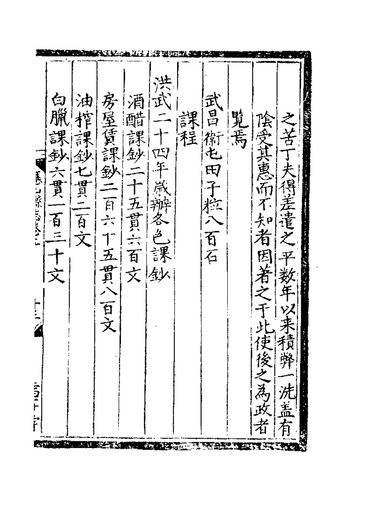 之苦丁夫得差遣之平数年以来積弊一洗盖有
陰受其惠而不知者因著之于此使後之為政者
覧焉
武昌衛屯田子粒八百石
課程
洪武二十四年歳辦各色課鈔
酒醋課鈔二十五貫六百文
房屋賃課鈔二百六十五貫八百文
油榨課鈔七貫二百文
白臘課鈔六貫一百三十文